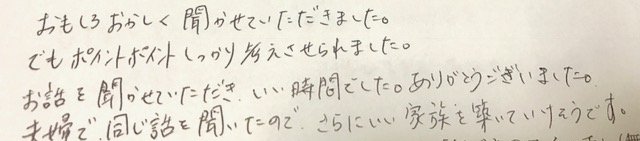 おもしろおかしく聞かせていただきました。
でもポイントポイントしっかり考えさせられました。
お話を聞かせていただき、いい時間でした。ありがとうございました。
夫婦で同じ話を聞いたので、さらにいい家族を築いていけそうです。